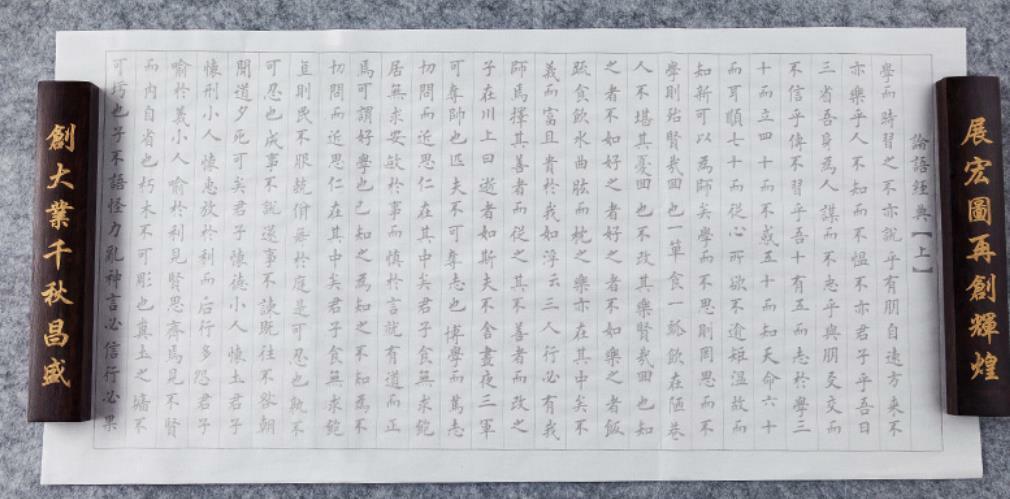 展宏圖再創輝煌
論語經典【上】
學而時習之不亦說乎有朋自遠方來不
亦樂乎人不知而不慍不亦君子乎吾日
三省吾身為人謀而不忠乎與朋友交而
不信乎傳不習乎吾十有五而志於學三
十而立四十而不惑五十而知天命六十
而耳順七十而從心所欲不逾矩溫故而
知新可以為師矣學而不思則罔思而不
學則殆賢哉回也一簞食一瓢飲在陋巷
人不堪其憂回也不改其樂賢哉回也知
之者不如好之者好之者不如樂之者飯
疏食飲水曲肱而枕之樂亦在其中矣不
義而富且貴於我如浮云三人行必有我
師焉擇其善者而從之其不善者而改之
子在川上曰逝者如斯夫不舍晝夜三軍
可奪帥也匹夫不可奪志也博學而篤志
切問而近思仁在其中矣君子食無求飽
居無求安敏於事而慎於言就有道而正
焉可謂好學也已知之為知之不知為不
切問而近思仁在其中矣君子食無求飽
直則民不服八佾舞於庭是可忍也孰不
可忍也成事不說遂事不諫既往不咎朝
聞道夕死可矣君子懷德小人懷土君子
懷刑小人懷惠放於利而后行多怨君子
喻於義小人喻於利見賢思齊焉見不賢
而內自省也朽木不可彫也糞土之墻不
可圬也子不語怪力亂神言必信行必果
創大業千秋昌盛